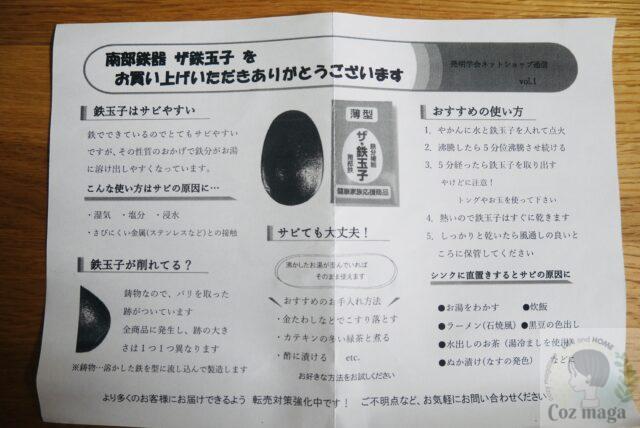 南部鉄器 ザ鉄玉子 を
お買い上げいただきありがとうございます
発明学会ネットショップ通信
vol.1
鉄玉子はサビやすい
鉄でできているのでとてもサビやすい
ですが、その性質のおかげで鉄分がお湯
に溶け出しやすくなっています。
こんな使い方はサビの原因に…
・湿気 ・塩分 ・浸水
・さびにくい金属(ステンレスなど)との接触
鉄玉子が削れてる？
鋳物なので、バリを取った
跡がついています
全商品に発生し、跡の大き
さは1つ1つ異なります
※鋳物…溶かした鉄を型に流し込んで製造します
薄型
ザ・鉄玉子
鉄分補給
南部鉄
健康家族応援商品
サビても大丈夫！
沸かしたお湯が澄んでいれば
そのまま使えます
おすすめのお手入れ方法
・金たわしなどでこすり落とす
・カテキンの多い緑茶と煮る
・酢に漬ける etc.
お好きな方法をお試しください
おすすめの使い方
1. やかんに水と鉄玉子を入れて点火
2. 沸騰したら5分位沸騰させ続ける
3. 5分経ったら鉄玉子を取り出す
やけどに注意！
トングやお玉を使って下さい
4. 熱いので鉄玉子はすぐに乾きます
5. しっかりと乾いたら風通しの良いと
ころに保管してください
シンクに直置きするとサビの原因に
●お湯をわかす ●炊飯
●ラーメン(石焼風) ●黒豆の色出し
●水出しのお茶（湯冷ましを使用）
●ぬか漬け(なすの発色) などに
より多くのお客様にお届けできるよう 転売対策強化中です！ ご不明点など、お気軽にお問い合わせください
and HOME
Coz maga